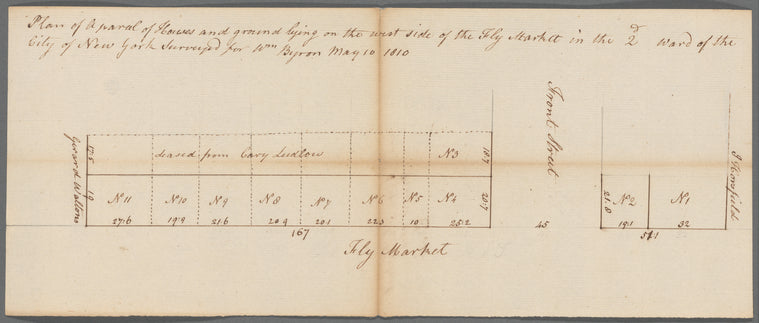 Plan of a parcel of Houses and ground lying on the west side of the Fly Market in the 2d ward of the
City of New York Surveyed for Wm Byron May 10 1810
Front Street
Gerard Waltons
17:5
leased from Cary Ludlow
N 3
18:7
J Horsfield
19
N 11
N 10
N 9
N 8
N 7
N 6
N 5
N 4
20:7
21:8
N 2
N 1
27:6
19:9
21:6
20:9
20:1
22:3
10
25:2
45
19:1
32
167
51:1
Fly Market